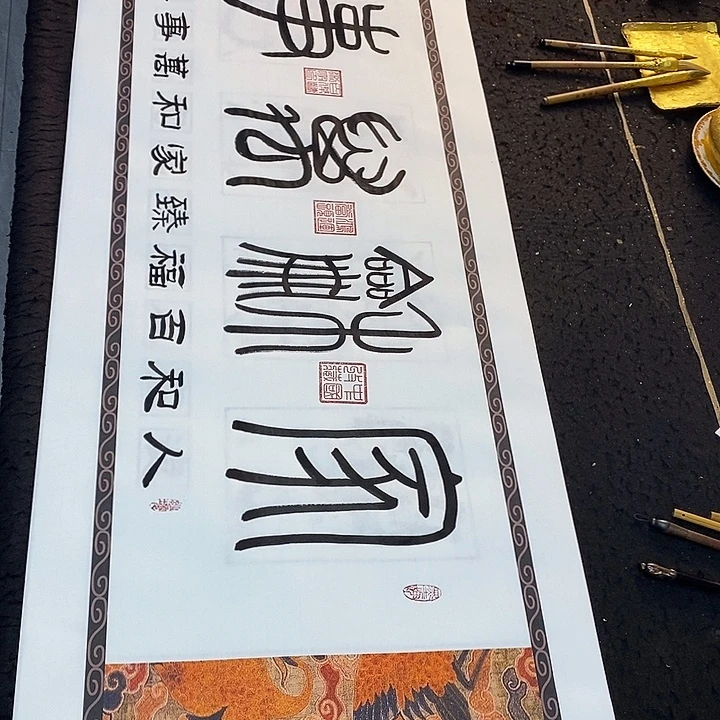 家龢萬事
人和百福臻家和萬事